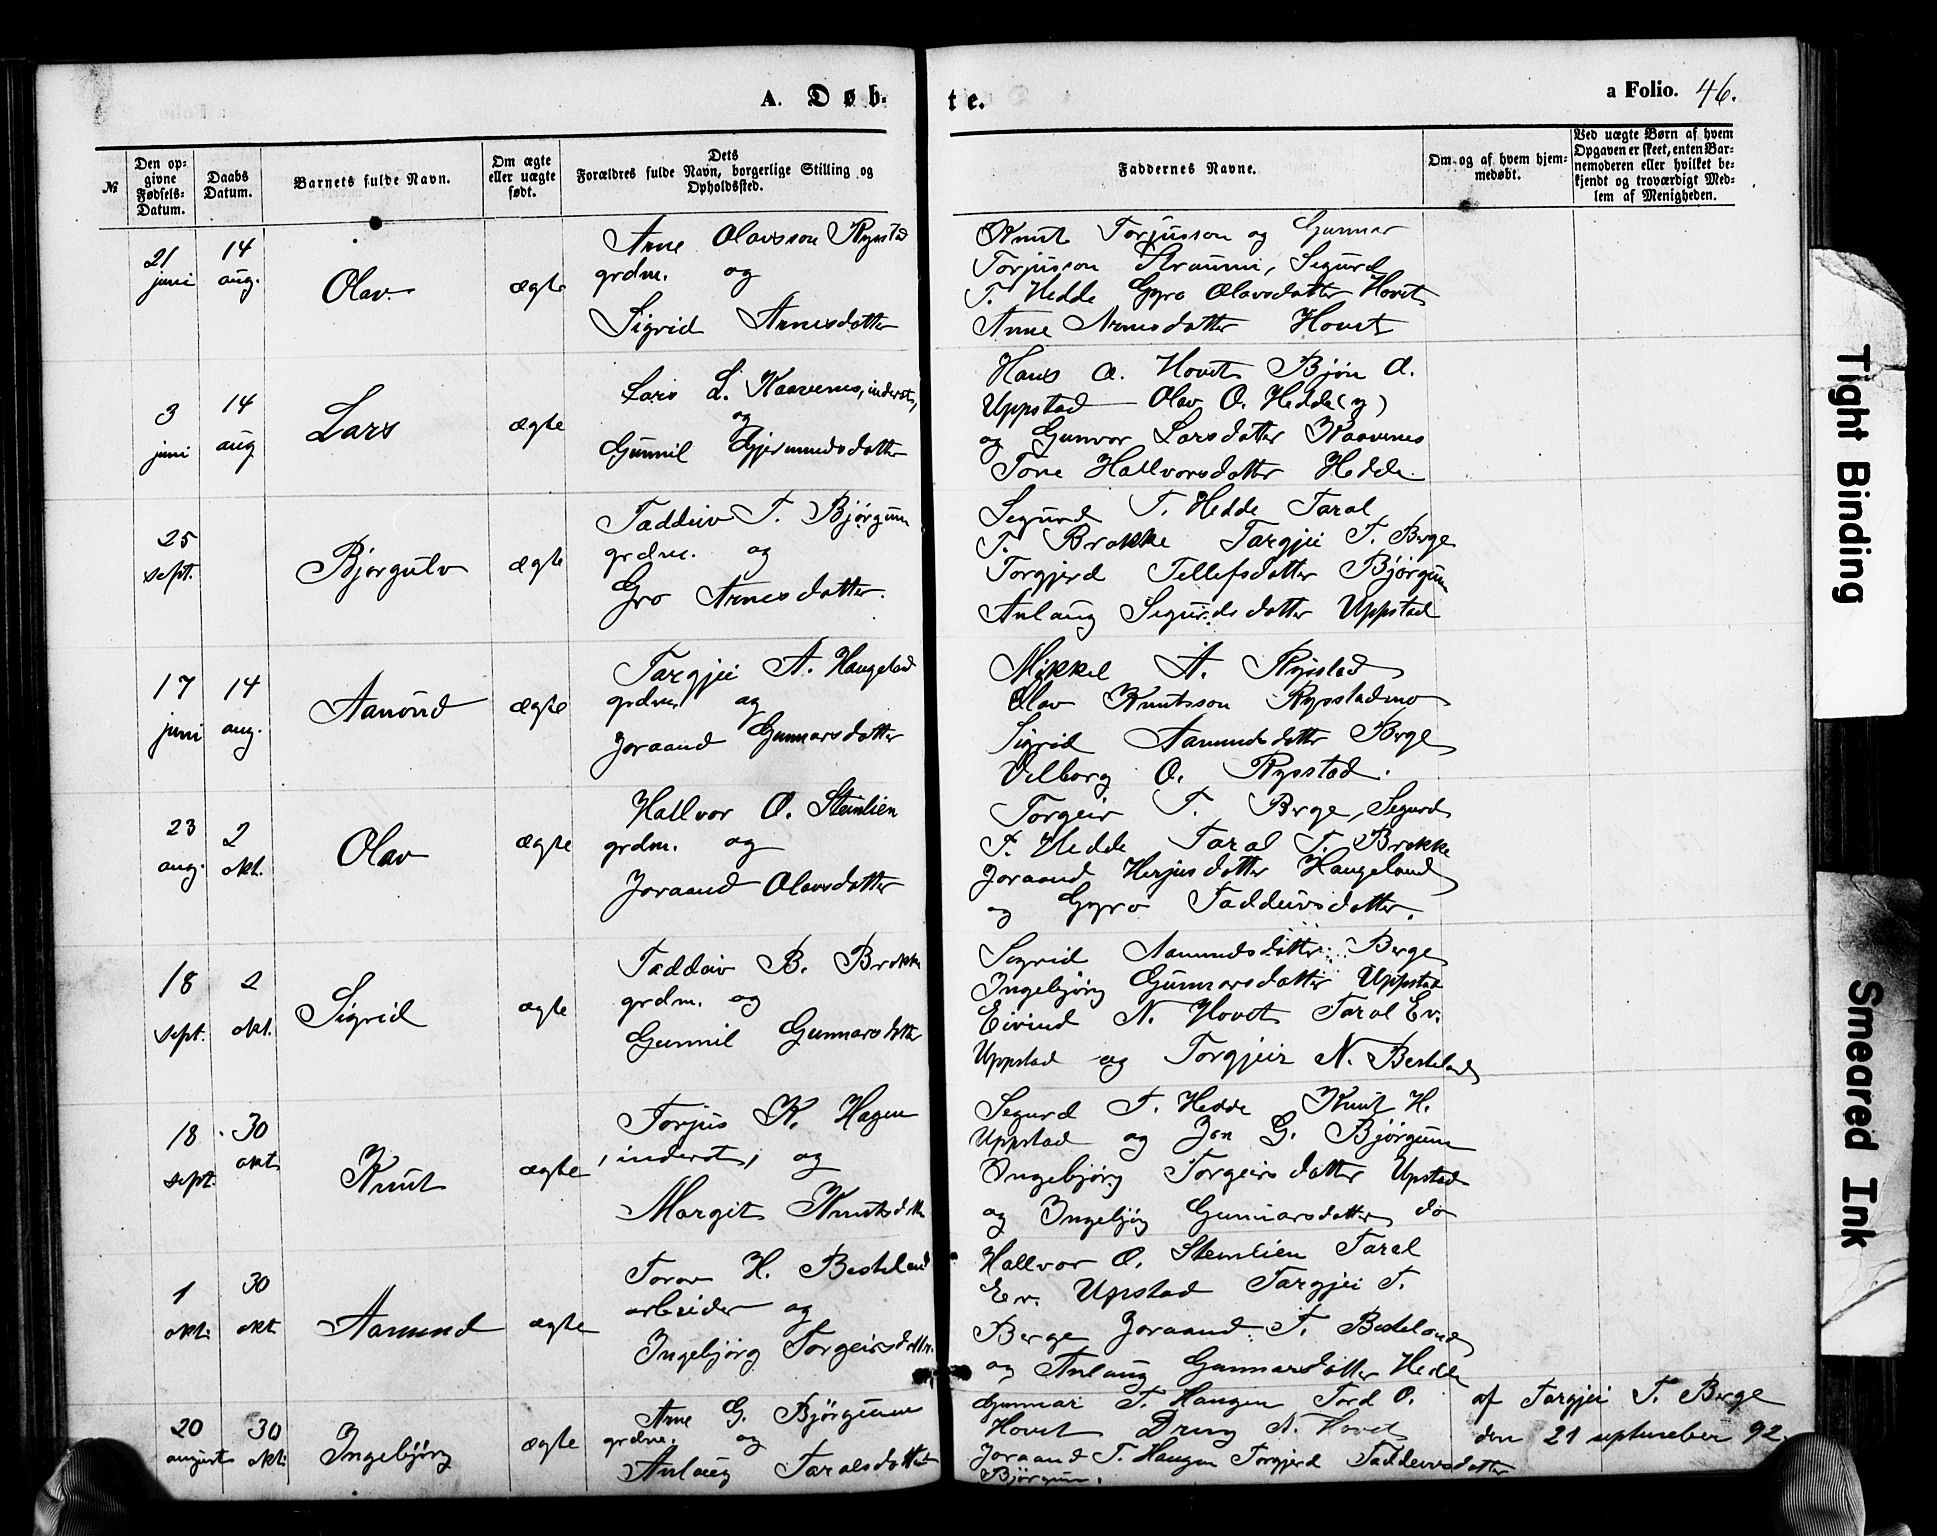 A. Døb-
te.
a Folio. 46.
№
Den op-
givne
Fødsels-
Datum.
Daabs
Datum.
Barnets fulde Navn.
Om ægte
eller uægte
født.
Dets
Forældres fulde Navn, borgerlige Stilling og
Opholdssted.
Faddernes Navne.
Om og af hvem hjem-
medøbt.
Ved uægte Børn af hvem
Opgaven er skeet, enten Bar-
nemoderen eller hvilket be-
kjendt og troværdigt Med-
lem af Menigheden.
21
juni
14
aug.
Olav
ægte
Arne Olavsson Rysstad
grdm. og
Sigrid Arnesdatter
Knut Torjusson og Gunnar
Torjusson Straumi, Segurd
T. Hedde Gyro Olavsdatter Hovet
Anne Arnesdatter Hovet
3
juni
14
aug
Lars
ægte
Lars L. Kaavenes, inderst,
og
Gunnil Gjermundsdatter
Hans O. Hovet Bjørn O.
Uppstad Olav O. Hedde (y)
og Gunvor Larsdatter Kaavenes
Tone Hallvorsdatter Hedde
25
sept.
Bjorgulv
ægte
Taddeiv T. Bjørgum
grdm. og
Gro Arnesdatter.
Segurd T. Hedde Taral
T. Brokke Targjei T. Berge
Torgjerd Tellefsdatter Bjørgum
Anlaug Segurdsdatter Uppstad
17
juni
14
aug.
Aamund
ægte
Targjei A. Haugeland
grdm. og
Joraand Gunnarsdatter
Mikkel A. Rysstad
Olav Knutsson Rysstadmo
Sigrid Aamundsdatter Berge
Vilborg O. Rysstad.
23
aug.
2
okt.
Olav
ægte
Hallvor O. Steinlien
grdm. og
Joraand Olavsdatter
Torgeir T. Berge, Segurd
T. Hedde Taral T. Brokke
Joraand Herjusdatter Haugeland
og Gyro Taddeivsdatter.
18
sept.
2
okt.
Sigrid
ægte
Taddeiv B. Brokke
grdm. og
Gunnil Gunnarsdatter
Sigrid Aamundsdatter Berge
Ingebjörg Gunnarsdatter Uppstad
Eivind N. Hovet Taral Ev.
Uppstad og Torgjeir N. Besteland
18
sept.
30
okt
Knut
ægte
Torjus K. Hagen
, inderst, og
Margit Knutsdtr
Segurd T. Hedde Knut H.
Uppstad og Jon G. Bjørgum
Ingebjörg Torgeirsdatter Upstad
og Ingebjörg Gunnarsdatter do
1
okt.
30
okt
Aamund
ægte
Torov H. Besteland
arbeider og
Ingebjörg Torgeirsdattr.
Hallvor O. Steinlien Taral
Ev. Upstad Targjei T.
Berge Joraand T. Besteland
og Anlaug Gunnarsdatter Hedde
20
august
30
okt.
Ingebjörg
ægte
Arne G. Bjørgum
grdm. og
Anlaug Taralsdatter
Gunnar T. Haugen Tord O.
Hovet Dreng N. Hovet
Joraand T. Haugen Torgjerd Taddeivsdatter
Bjørgum.
af Targjei T. Berge
den 21 september 92.
Tight Binding
Smeared Ink